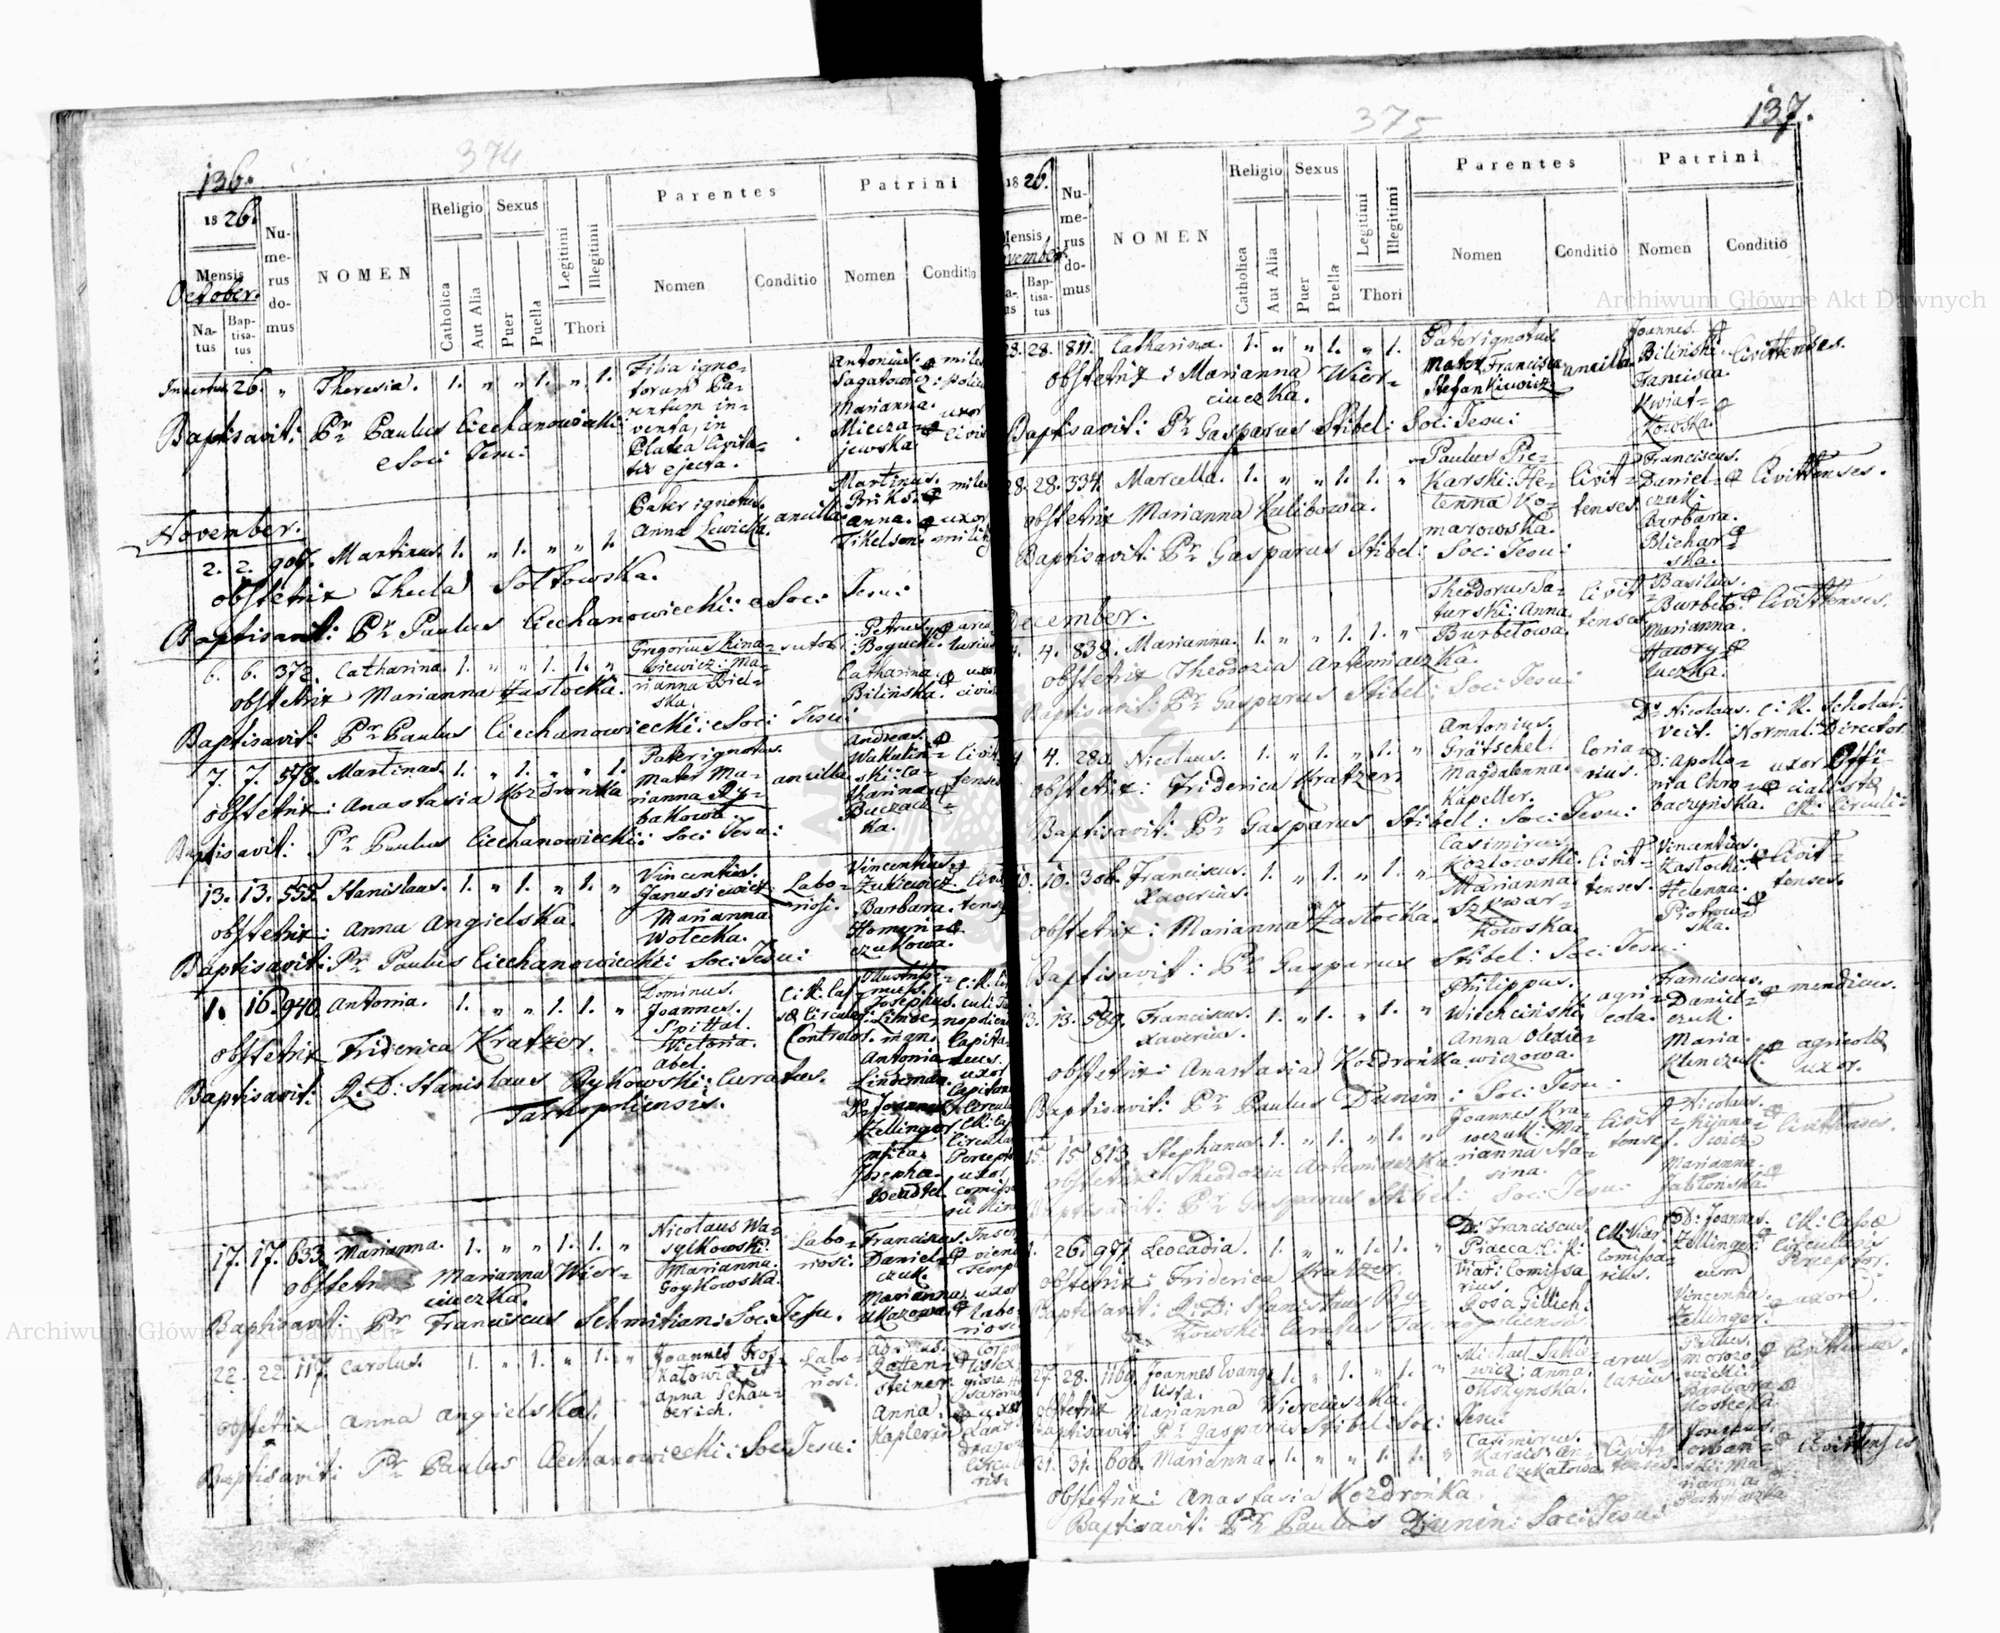 136.
374
18 26.
Mensis
October.
Na-
tus
Bap-
tisa-
tus
Nu-
me-
rus
do-
mus
NOMEN
Religio
Catholica
Aut Alia
Sexus
Puer
Puella
Legitimi
Illegitimi
Thori
Parentes
Nomen
Conditio
Patrini
Nomen
Conditio
26. " Theresia. 1. " " 1. " 1.
Filia igno-
torum Pa-
rentum in-
venta, in
Platea Civita-
tis ejecta.
Antonius
Marianna.
Miecza-
jewska
miles
uxor
Baptisavit: Pr Paulus Ciechanowiecki
e Soci Jesu:
November.
2. 2. 907. Martinus. 1. " 1. " " 1.
Pater ignotus.
Anna Lewicka.
ancilla
Martinus.
Briks.
Anna.
Fikelson.
miles
uxor
obstetrix Thecla Sołtowska.
Baptisavit: Pr Paulus Ciechanowiecki: e Soc: Jesu:
6. 6. 372. Catharina. 1. " " 1. 1. "
Gregorius
Ma-
rianna Biel-
ska.
sutor
Petrus
Bogucki.
Catharina.
Bilińska.
obstetrix Marianna Zastocka.
Baptisavit: Pr Paulus Ciechanowiecki: e Soci Jesu:
7. 7. 578. Martinus. 1. " 1. " " 1.
Pater ignotus.
Mater Ma-
rianna Ry-
bakowa.
ancilla
Andreas.
Wakulin-
ski: Ca-
tharina
Buczack-
ka.
obstetrix: Anastasia Kozdronka
Baptisavit: Pr Paulus Ciechanowiecki: Soci Jesu:
13. 13. 555. Stanislaus. 1. " 1. " 1. "
Vincentius.
Janusiewicz
Marianna.
Wolecka.
Labo-
riosi.
Vincentius
Żukiewicz
Barbara.
Homini-
czukowa.
obstetrix: Anna Angielska.
Baptisavit: Pr Paulus Ciechanowiecki: Soci: Jesu:
1. 16. 940. Antonia. 1. " " 1. 1. "
Dominus.
Joannes.
Spittal.
Victoria.
Abel.
Josephus.
Linde-
man.
Antonia
Lindeman.
Joannes
Zellinger
Josepha.
obstetrix Friderica Kratzer.
Baptisavit: R. D: Stanislaus Rykowski: Curatus.
Tarnopoliensis.
17. 17. 633. Marianna. 1. " " 1. 1. "
Nicolaus Wa-
sylkowski:
Marianna.
Goykowska.
Labo-
riosi.
Franciscus.
Daniel-
czuk.
Marianna
obstetrix: Marianna Wier-
ciuczka.
Baptisavit: Pr Franciscus Schmitian: Soc: Jesu.
22. 22. 117. Carolus. 1. " 1. " 1. "
Joannes
Anna Schau-
berich.
Labo-
riosi.
steiner
Anna.
Kaplerin
obstetrix Anna Angielska.
Baptisavit: Pr Paulus Ciechanowiecki: Soc: Jesu:
137.
375
18 26.
Mensis
November.
Bap-
tisa-
tus
Nu-
me-
rus
do-
mus
NOMEN
Religio
Catholica
Aut Alia
Sexus
Puer
Puella
Legitimi
Illegitimi
Thori
Parentes
Nomen
Conditio
Patrini
Nomen
Conditio
28. 28. 811. Catharina. 1. " " 1. " 1.
Pater ignotus.
Mater Francisca
Stefankiewicz
ancilla
Joannes.
Biliński.
Francisca.
Kwiat-
kowska.
Civittenses.
obstetrix: Marianna Wier-
ciuczka.
Baptisavit: Pr Gasparus Stibel: Soci: Jesu:
28. 28. 334. Marcella. 1. " " 1. 1. "
Paulus Pie-
karski: He-
lenna Ko-
marowska.
Civit-
tenses.
Franciscus.
Daniel-
czuk.
Barbara.
Blichar-
ska.
Civittenses.
obstetrix Marianna Kulibowa.
Baptisavit: Pr Gasparus Stibel: Soci: Jesu:
December.
4. 4. 838. Marianna. 1. " " 1. 1. "
Theodorus Sa-
turski: Anna
Burbelowa.
Civit-
tenses
Basilius.
Burbelo.
Marianna.
Hawry-
luczka.
Civittenses.
obstetrix Theodozia Artemiaczka.
Baptisavit: Pr Gasparus Stibel: Soci: Jesu:
4. 4. 280. Nicolaus. 1. " 1. " 1. "
Antonius.
Grätschel.
Magdalenna.
Kapeller.
Coria-
rius.
Dr Nicolaus.
Veit.
D: Apollo-
nia Chro-
baczyńska.
C: R. Scholar:
Normal: Director.
uxor Offi-
cialis
CR: Circuli:
obstetrix: Friderica Kratzer:
Baptisavit: Pr Gasparus Stibel: Soci: Jesu:
10. 10. 306. Franciscus. 1. " 1. " 1. "
Xaverius.
Casimirus.
Kozłowski.
Marianna.
Szkwar-
kowska.
Civit-
tenses.
Vincentius.
Zastocki.
Helenna.
Piotrow-
ska.
Civit-
tenses.
obstetrix: Marianna Zastocka.
Baptisavit: Pr Gasparus Stibel: Soci: Jesu:
13. 13. 589. Franciscus. 1. " 1. " 1. "
Xaverius.
Philippus.
Witchciński
Anna Olexie-
wiczowa.
agri-
cola.
Franciscus.
Daniel-
czuk.
Maria.
Klimczuk
mendicus.
agricolæ
uxor.
obstetrix: Anastasia Kozdrońka
Baptisavit: Pr Paulus Dunin: Soci: Jesu:
15. 15. 813. Stephanus. 1. " 1. " 1. "
Joannes Kra-
wczuk: Ma-
rianna Sta-
sina.
Civit-
tenses.
Nicolaus.
Kijano-
wicz
Marianna.
Jabłońska
Civittenses.
obstetrix Theodozia Artemiaczka
Baptisavit: Pr Gasparus Stibel: Soci: Jesu:
26. 971. Leocadia. 1. " " 1. 1. "
D: Franciscus.
Piacca C. R.
Viar: Comissa
rius.
Rosa Gillich.
CR: Viar:
Comissa-
rius.
D: Joannes.
Zellinger
cum
Vincentia.
Zellinger.
CR: Cassæ
Circularis
Perceptor.
uxore.
obstetrix: Friderica Kratzer.
Baptisavit: R: D: Stanislaus Ry-
kowski Curatus Tarnopoliensis
27. 28. 1169. Joannes Evange 1. " 1. " 1. "
lista.
Michael
wicz: Anna
Olszynska.
arcu-
larius.
Paulus.
Morozo
wicki
Barbara
Civittenses.
obstetrix Marianna Wierciuszka.
Baptisavit: Pr Gasparus Stibel: Soc: Jesu:
31. 31. 606. Marianna. 1. " " 1. 1. "
Casimirus.
Civit-
tenses.
Josephus.
Civittenses
obstetrix: Anastasia Kozdrońka
Baptisavit: Pr Paulus Dunin: Soci: Jesu:
Archiwum Główne Akt Dawnych
Archiwum Główne Akt Dawnych